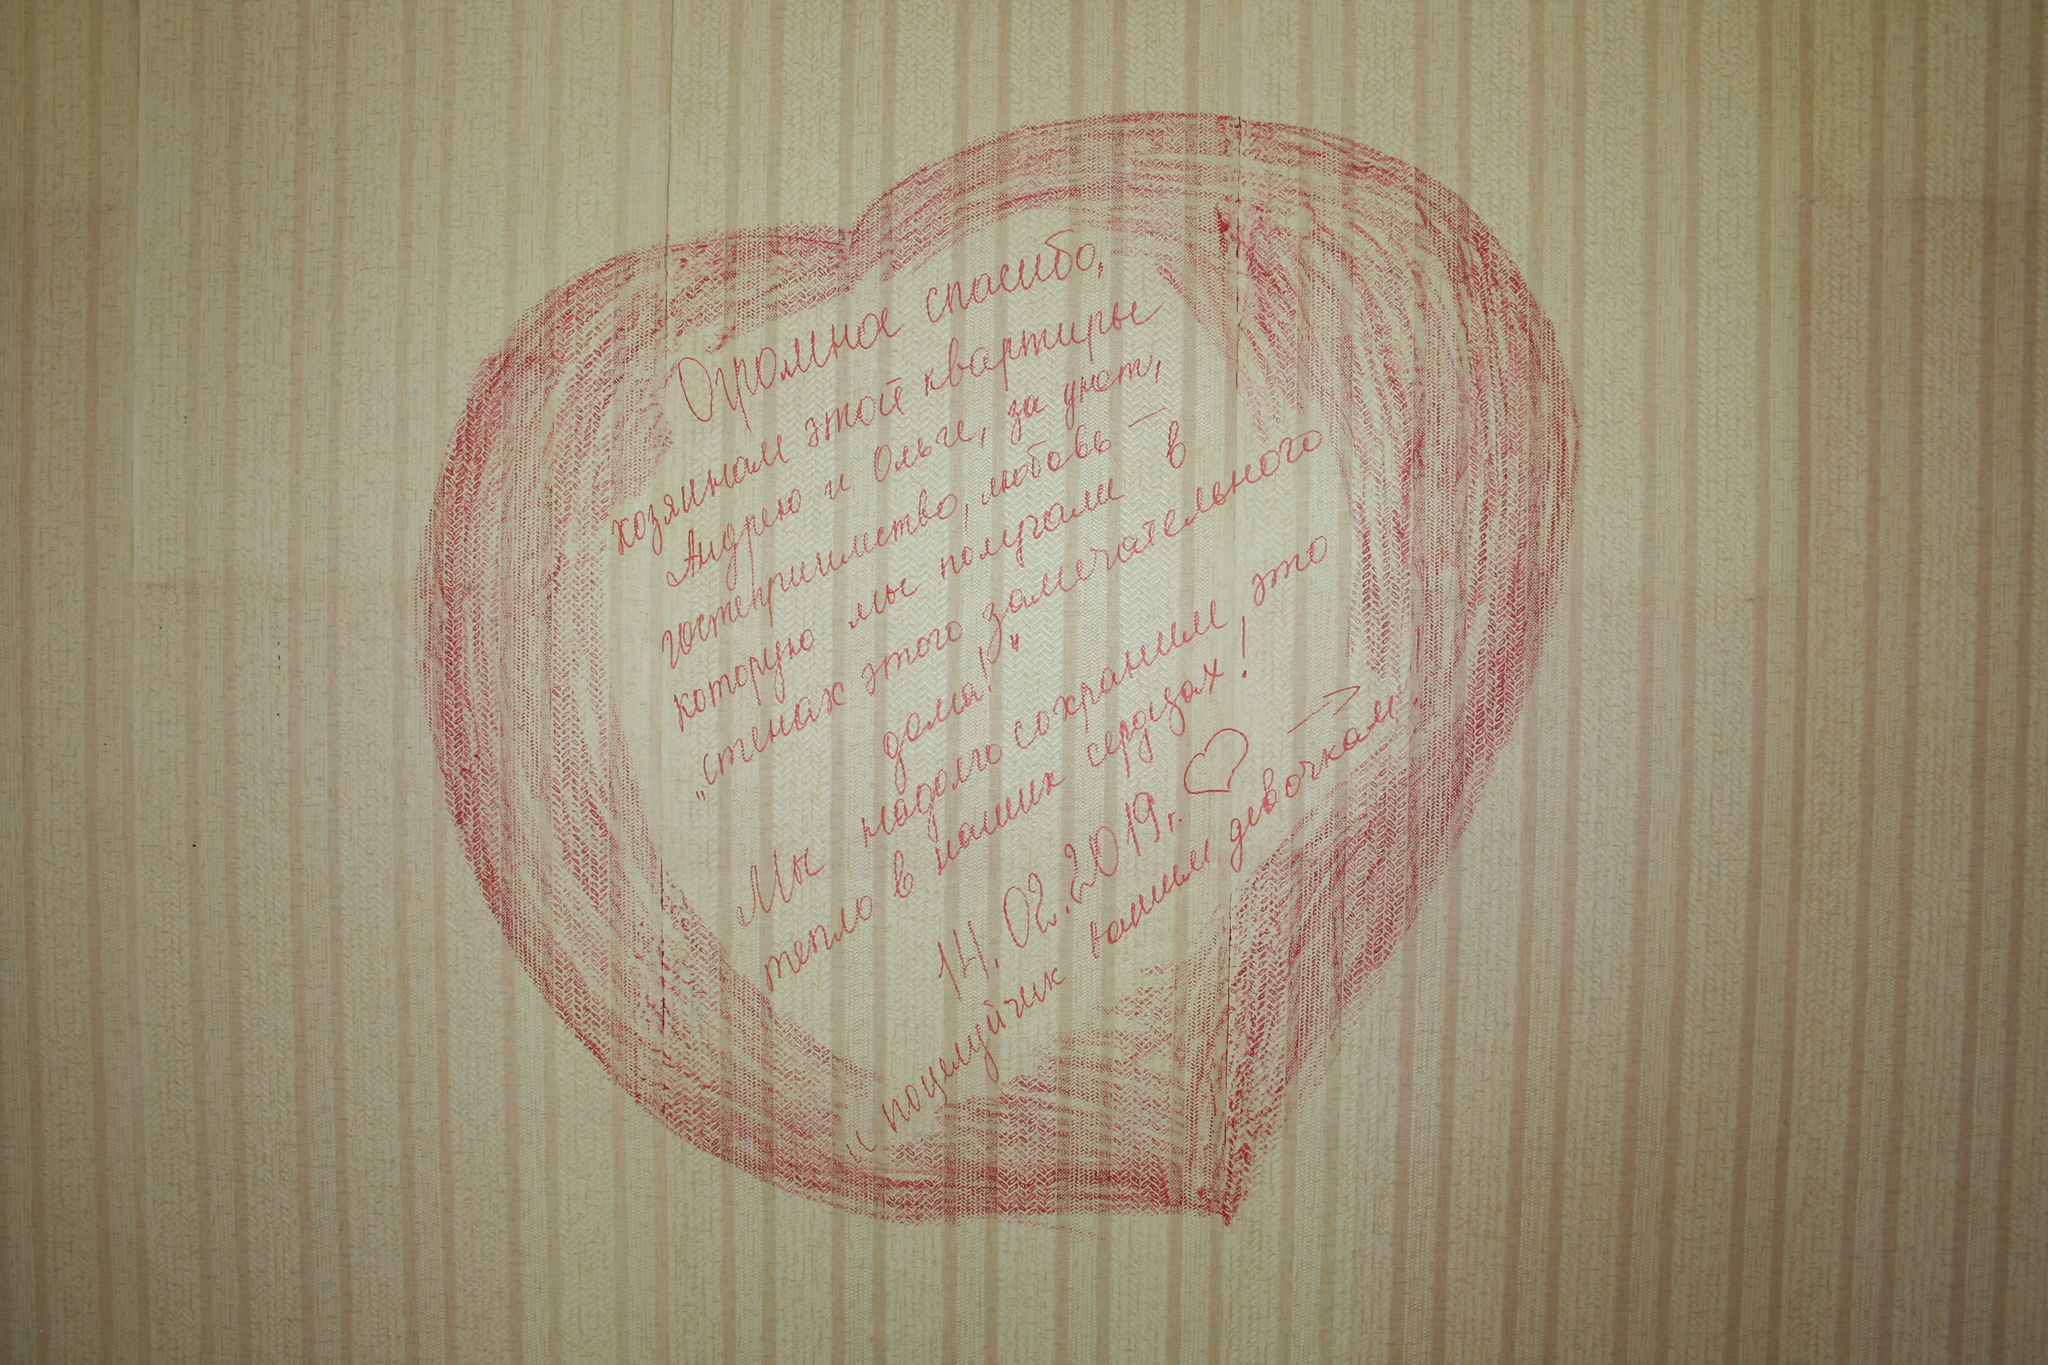 Огромное спасибо,
хозяинам этой квартиры
Андрею и Ольге, за уют,
гостеприимство, любовь –
которую мы получали в
„стенах этого замечательного
дома!“
Мы надолго сохраним это
тепло в наших сердцах!
14.02.2019г. ♡ →
"поцелуйчик вашим девочкам!